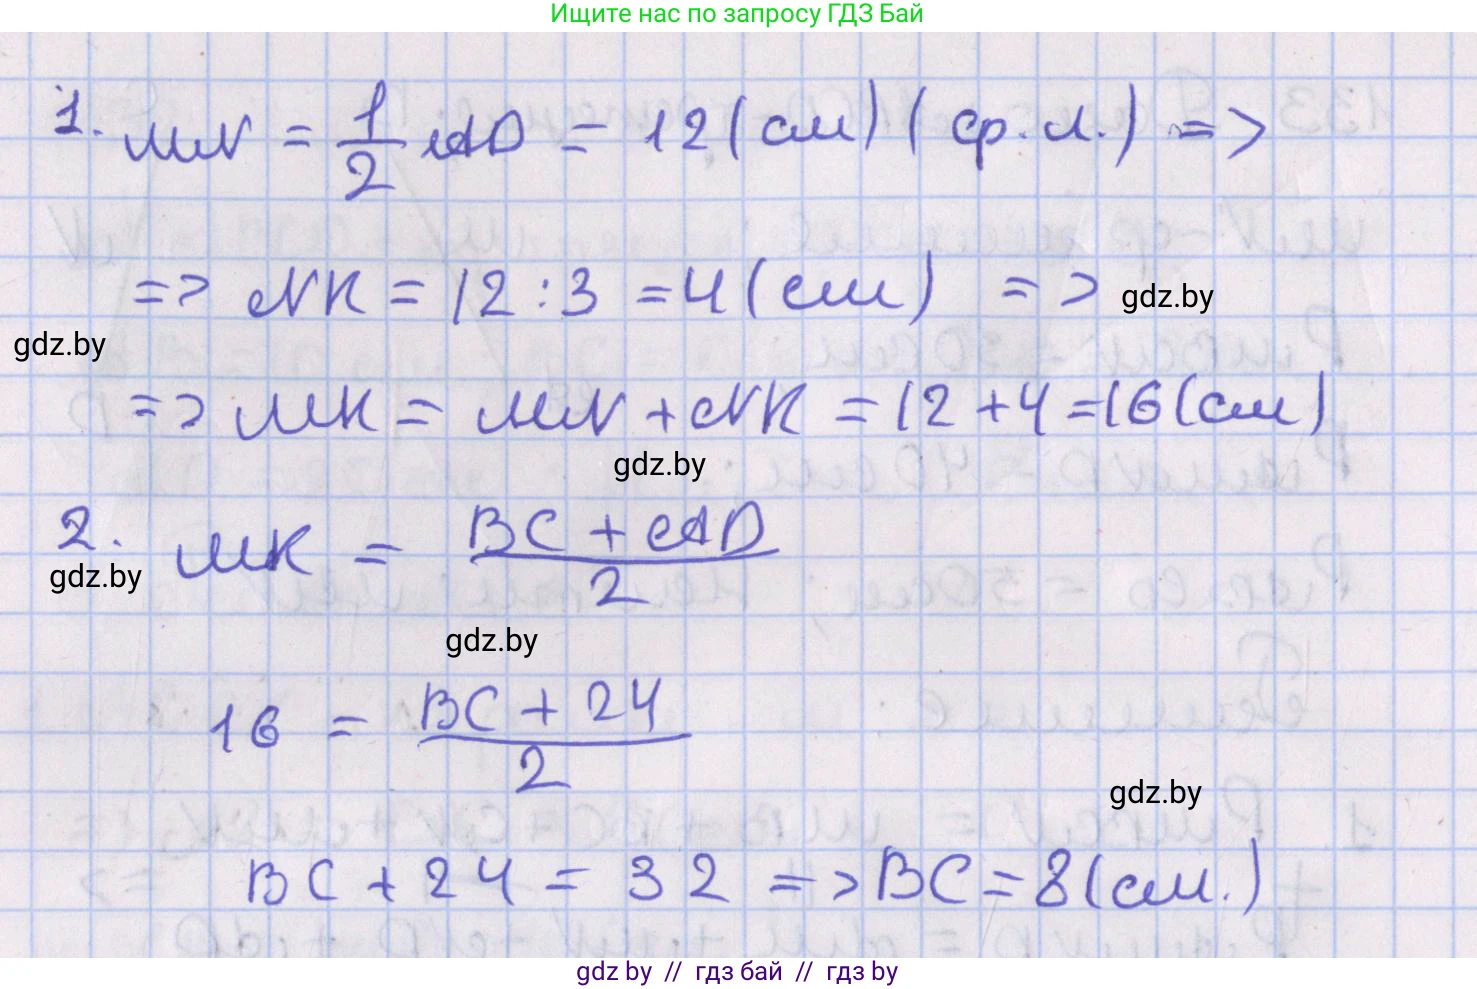 Ищите нас по запросу ГДЗ Бай
1. MN = 1/2 AD = 12 (см) (ср. л.) =>
=> NK = 12 : 3 = 4 (см) => gdz.by
gdz.by
=> MK = MN + NK = 12 + 4 = 16 (см)
gdz.by
2. MK = BC + AD / 2
gdz.by
gdz.by
16 = BC + 24 / 2
gdz.by
BC + 24 = 32 => BC = 8 (см.)
gdz by // гдз бай // гдз by